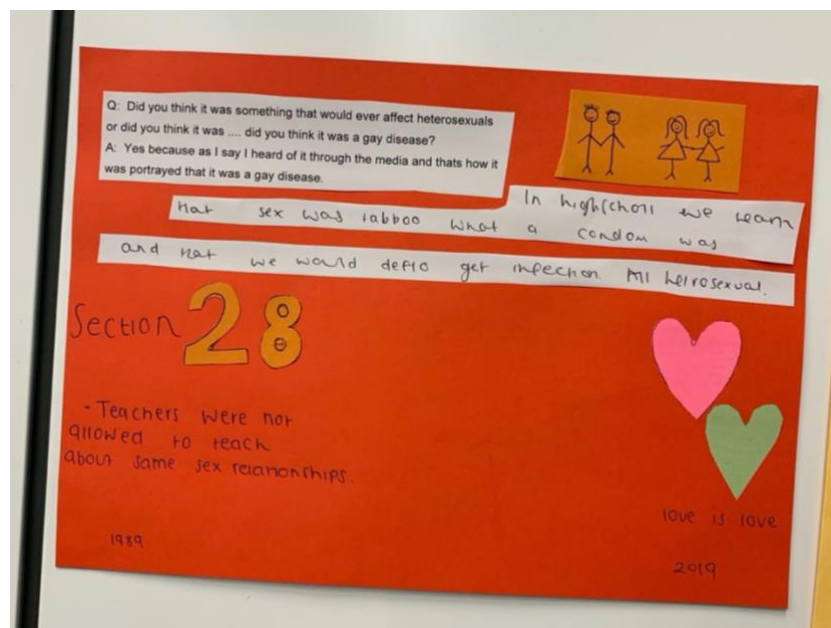 Q: Did you think it was something that would ever affect heterosexuals
or did you think it was .... did you think it was a gay disease?
A: Yes because as I say I heard of it through the media and thats how it
was portrayed that it was a gay disease.
In highscholl we learn
that sex was tabboo what a condom was
and that we would defto get infection All hetrosexual.
Section 28
- Teachers were not
allowed to teach
about same sex relationships.
1989
love is love
2019